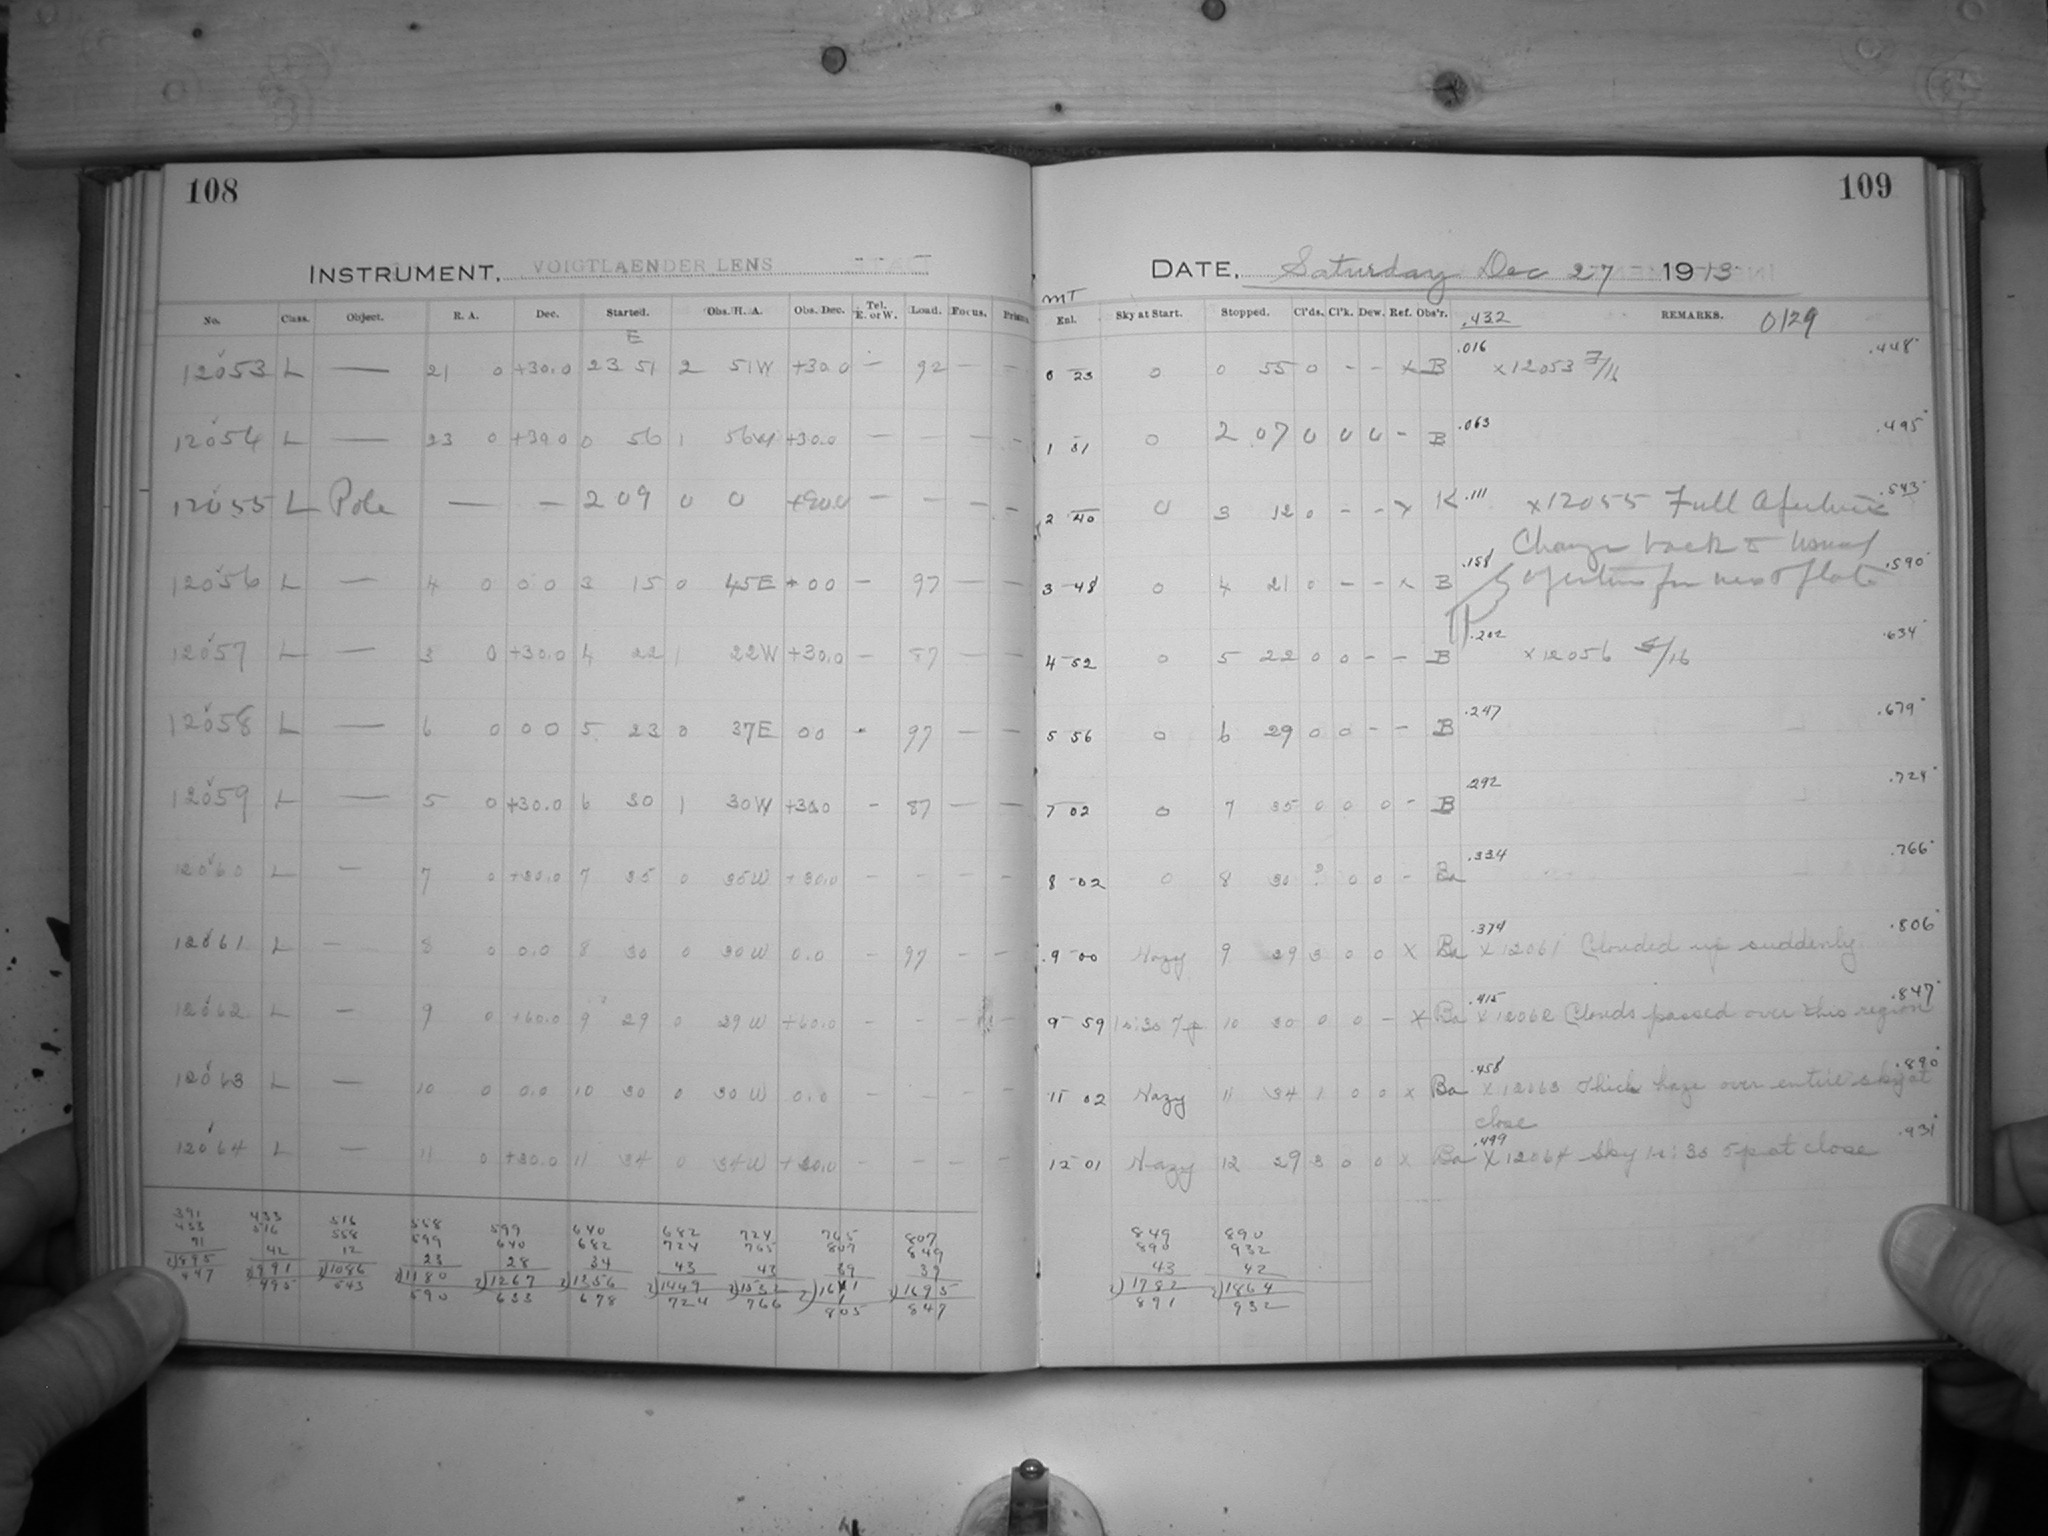 108
INSTRUMENT. VOIGTLAENDER LENS
No. Class. Object. R. A. Dec. Started. Obs. H. A. Obs. Dec. Tel. E. or W. Load. Focus. Prism.
E
12053 L — 21 0 +30.0 23 51 2 51W +30.0 — 92 — —
12054 L — 23 0 +30.0 0 56 1 56W +30.0 — — — —
12055 L Pole — — 2 09 0 0 +90.0 — — — —
12056 L — 4 0 0.0 3 15 0 45E +00 — 97 — —
12057 L — 3 0 +30.0 4 22 1 22W +30.0 — 87 — —
12058 L — 6 0 0 0 5 23 0 37E 00 - 97 — —
12059 L — 5 0 +30.0 6 30 1 30W +30.0 - 87 — —
12060 L — 7 0 +30.0 7 35 0 35W +30.0 - - - -
12061 L — 8 0 0.0 8 30 0 30W 0.0 - 97 - -
12062 L — 9 0 +60.0 9 29 0 29W +60.0 - - -
12063 L — 10 0 0.0 10 30 0 30W 0.0 - - - -
12064 L — 11 0 +30.0 11 34 0 34W +30.0 - - - -
391 433 516 558 599 640 682 724 765 807
433 516 558 599 640 682 724 765 807 849
91 42 12 23 28 34 43 43 39 39
2)895 2)991 2)1086 2)1180 2)1267 2)1356 2)1449 2)1532 2)1611 2)1695
447 495 543 590 633 678 724 766 805 847
109
DATE. Saturday Dec 27 1913
MT
Enl. Sky at Start. Stopped. Cl'ds. Cl'k. Dew. Ref. Obs'r. .432 REMARKS. 0129
0 23 0 0 55 0 - - x B .016 x12053 F/16 .448
1 31 0 2 07 0 0 0 - B .063 .495
2 40 0 3 12 0 - - x K .111 x12055 Full Aperture .543
Change back to usual
3 48 0 4 21 0 - - x B .158 aperture for next plate .590
4 52 0 5 22 0 0 - - B .202 x12056 F/16 .634
5 56 0 6 29 0 0 - - B .247 .679
7 02 0 7 35 0 0 0 - B 292 .724
8 02 0 8 30 ? 0 0 - Ba .334 .766
9 00 Hazy 9 29 3 0 0 x Ba .374 x 12061 Clouded up suddenly .806
9 59 10 30 0 0 - x Ba .415 x 12062 Clouds passed over this region .847
11 02 Hazy 11 34 1 0 0 x Ba .458 x 12063 Thick haze over entire sky at .890
close
12 01 Hazy 12 29 3 0 0 x Ba .499 x 12064 Sky at close .931
849 890
890 932
43 42
2)1782 2)1864
891 932